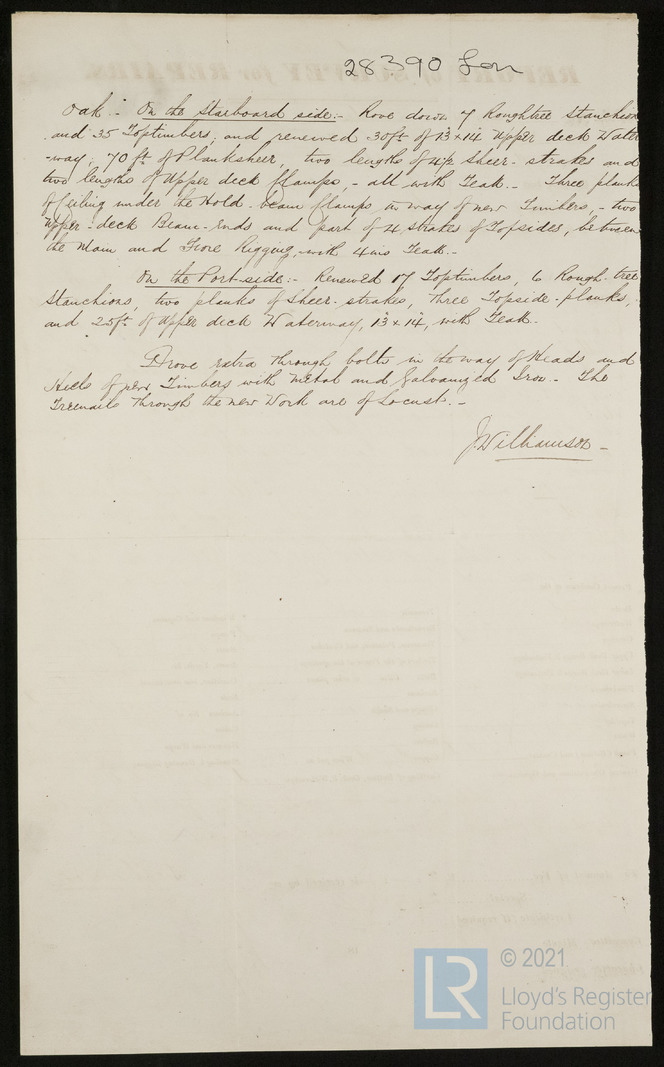 28390 Lon
Oak :- On the Starboard side :- Hove down 7 Roughtree Stanchions
and 35 Toptimbers, and renewed 30ft of 13 x 14 Upper deck Water
-way, 70 ft of Planksheer, two lengths of Sheer-strakes and
two lengths of Upper deck Clamps, - all with Teak. - Three planks
of ceiling under the Hold-beam Clamps in way of new Timbers, - two
Upper-deck Beam-Ends and part of 4 Strakes of Topsides, between
the Main and Fore Rigging, with 4 ins Teak. -
On the Port-side :- Renewed 17 Toptimbers, 6 Rough-tree
Stanchions, two planks of Sheer-strakes, Three Topside-planks,
and 25ft of Upper deck Waterway, 13 x 14, with Teak.
Drove extra through bolts in the way of Heads and
Heels of new Timbers with Metal and Galvanized Iron. - The
Treenails through the new Work are of Locust. -
J. Williamson -
LR
© 2021
Lloyd's Register
Foundation